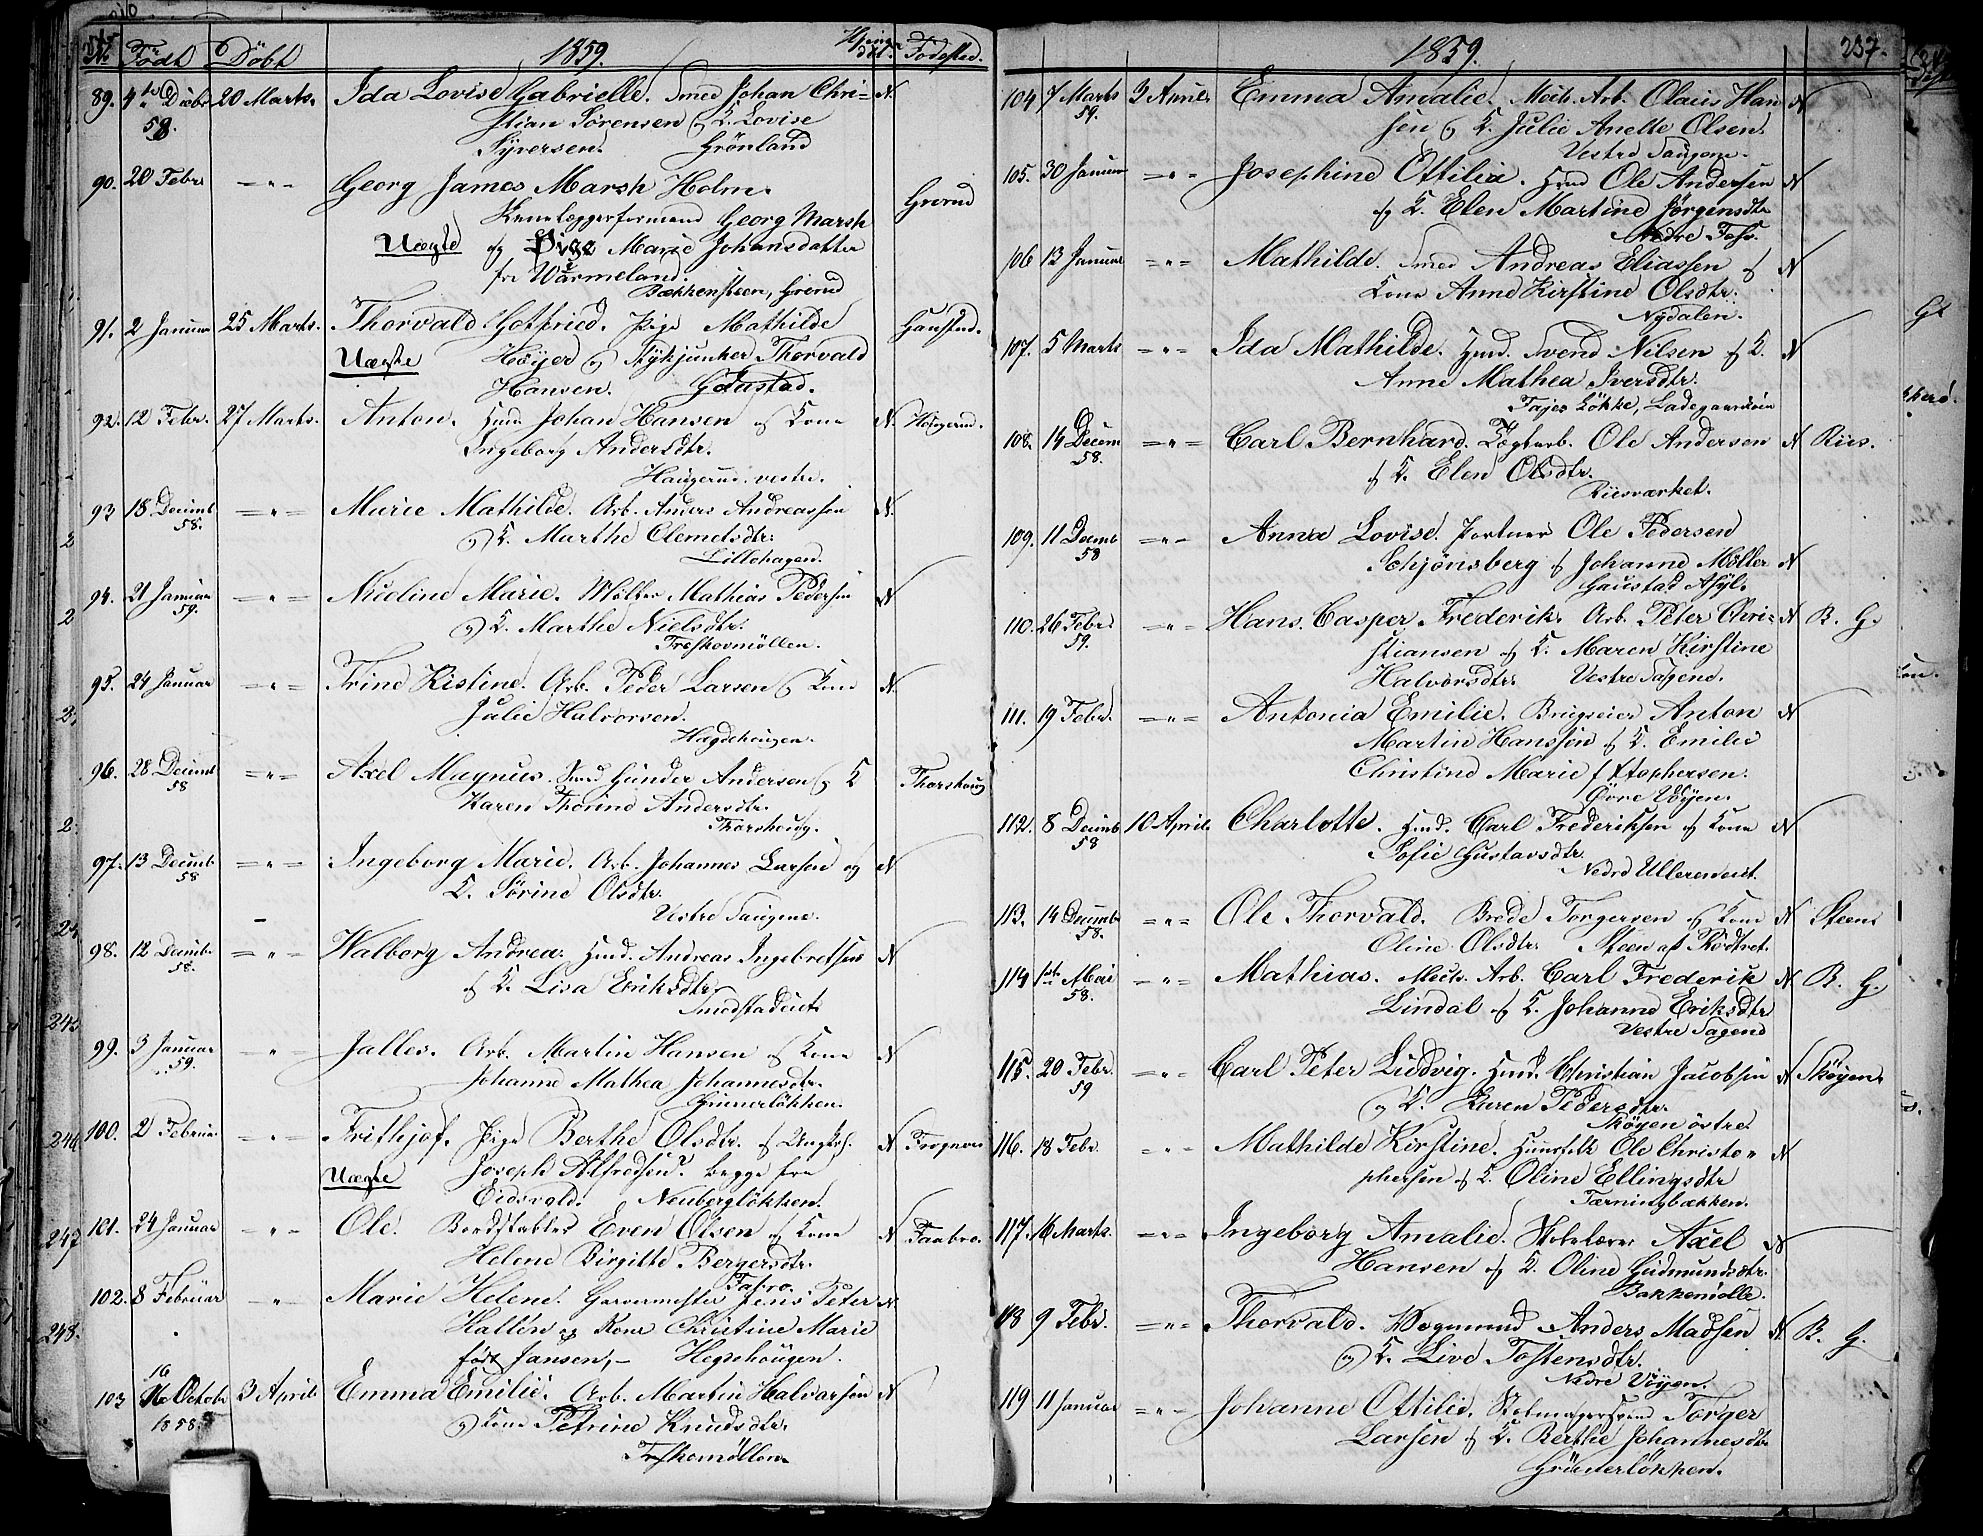 No. Födt Döbt 1859. Hjemme döbt. Födested.
89. 4de Decbr 20 Marts. Ida Lovise Gabrielle. Smed Johan Chri- N.
58. stian Sörensen og K. Lovise
Syversen. Grönland
90. 20 Febr. — " — Georg James Marsh Holm.
Georg Marsh Grorud
Uægte og Pige Marie Johansdatter
fra Wærmeland.
Bækkensteen, Grorud
91. 2 Januar 25 Marts. Thorvald Gotfried. Pige Mathilde Gaustad.
Uægte Höyer og Stykjunker Thorvald
Hansen. Gaustad.
92. 12 Febr. 27 Marts. Anton. Huusmd Johan Hansen og Kone N. Haugerud.
Ingeborg Andersdtr.
Haugerud vestre.
93 18 Decemb — " — Marie Mathilde. Arb. Anders Andreassen N.
58. og K. Marthe Clemetsdtr.
Lillohagen.
94. 21 Januar — " — Nicoline Marie. Möller Mathias Pedersen N
59. og K. Marthe Nielsdtr.
Treskomöllen.
95. 24 Januar — " — Trine Kistine. Arb. Peder Larsen og Kone N.
Julie Halvorsen.
Hægdehougen.
96. 28 Decemb. — " — Axel Magnus. Gunder Andersen og K Thorshoug
58 Karen Thorine Andersdtr.
Thorshoug.
97. 13 Decemb. — " — Ingeborg Marie. Arb. Johannes Larsen og N
58 K. Sörine Olsdtr.
Vestre Saugene.
98. 12 Decemb. — " — Walborg Andrea. Husmd. Andreas Ingebretsen N
58. og K. Lisa Eriksdtr
Smedstadeiet
99. 3 Januar — " — Jalles. Arb. Martin Hansen og Kone N
59. Johanne Mathea Johannesdtr.
Grünerlökken.
100. 2 Februar — " — Frithjof. Pige Berthe Olsdtr. og Ungk. N Frogner
Uægte Joseph Alfredsen? begge fra
Eidsvold. Neuberglökken.
101. 24 Januar — " — Ole. Bordstabler Even Olsen og Kone N Faabro.
Helene Birgitte Bergersdtr.
Fabro.
102. 8 Februar — " — Marie Helene. Garvermester Jens Peter N
Hallén og Kone Christine Marie
födt Jansen, – Hegdehougen.
16
103 Octobr 3 April. Emma Emilie. Arb. Martin Halvorsen N
1858 og Kone Petrine Knudsdtr.
Treskemöllen
1859. 237.
104 7 Marts 3 April. Emma Amalie. Mech. Arb. Olaus Han N
59. sen og K. Julie Anette Olsen.
Vestre Saugene.
105. 30 Januar — " — Josephine Ottilia. Husmd Ole Andersen N
og K. Elen Martine Jörgensdtr
Nedre Foss.
106 13 Januar — " — Mathilde. Smed Andreas Eliassen og N
Kone Anne Kirstine Olsdtr.
Nydalen.
107. 5 Marts — " — Ida Mathilde. Husmd. Svend Nilsen og K. N
Anne Mathea Iversdtr.
Tajes Lökke, Ladegaardsöen
108. 14 Decem — " — Carl Bernhard. Ole Andersen N Riis.
58. og K. Elen Olsdtr.
Riisværket.
109. 11 Decemb — " — Anna Lovise. Portner Ole Pedersen
58 Schjönsberg og Johanne Möller N
Gaustad Asyl.
110. 26 Febr. — " — Hans Casper Frederik. Arb. Peter Chri- N B. G.
59. stiansen og K. Maren Kirstine
Halvorsdtr. Vestre Sagene.
111. 19 Febr. — " — Antonia Emilie. Brugseier Anton N
Martin Hanssen og K. Emilie
Christine Marie
Övre Vöyen.
112. 8 Decemb 10 April. Charlotte. Husmd. Carl Frederiksen og Kone N
58 Sofie Gustavsdtr.
Nedre Ullereneiet
113. 14 Decemb — " — Ole Thorvald. Brede Torgersen og Kone N Steen
58. Oline Olsdtr. Steen af Rödtvet.
114 1ste Mai — " — Mathias. Mech. Arb. Carl Frederik N B. G.
58. Lindal og K. Johanne Eriksdtr
Vestre Sagene
115. 20 Febr. — " — Carl Peter Ludvig. Husmd. Christian Jacobsen N Skøyen.
59 og K. Karen Pedersdtr.
Skøyen östre
116. 18 Febr. — " — Mathilde Kirstine. Ole Christo- N
phersen og K. Oline Ellingsdtr
Tærningbækken.
117. 16 Marts. — " — Ingeborg Amalie. Skolelærer Axel N
Hansen og K. Oline Gudmundsdtr.
Bakkemölle.
118 9 Febr. — " — Thorvald. Vognmand Anders Madsen N B. G.
og K. Live Tostensdtr.
Nedre Vöyen.
119 11 Januar — " — Johanne Ottilie. Stolmagersvend Torger
Larsen og K. Berthe Johannesdtr
Grünerlökken.